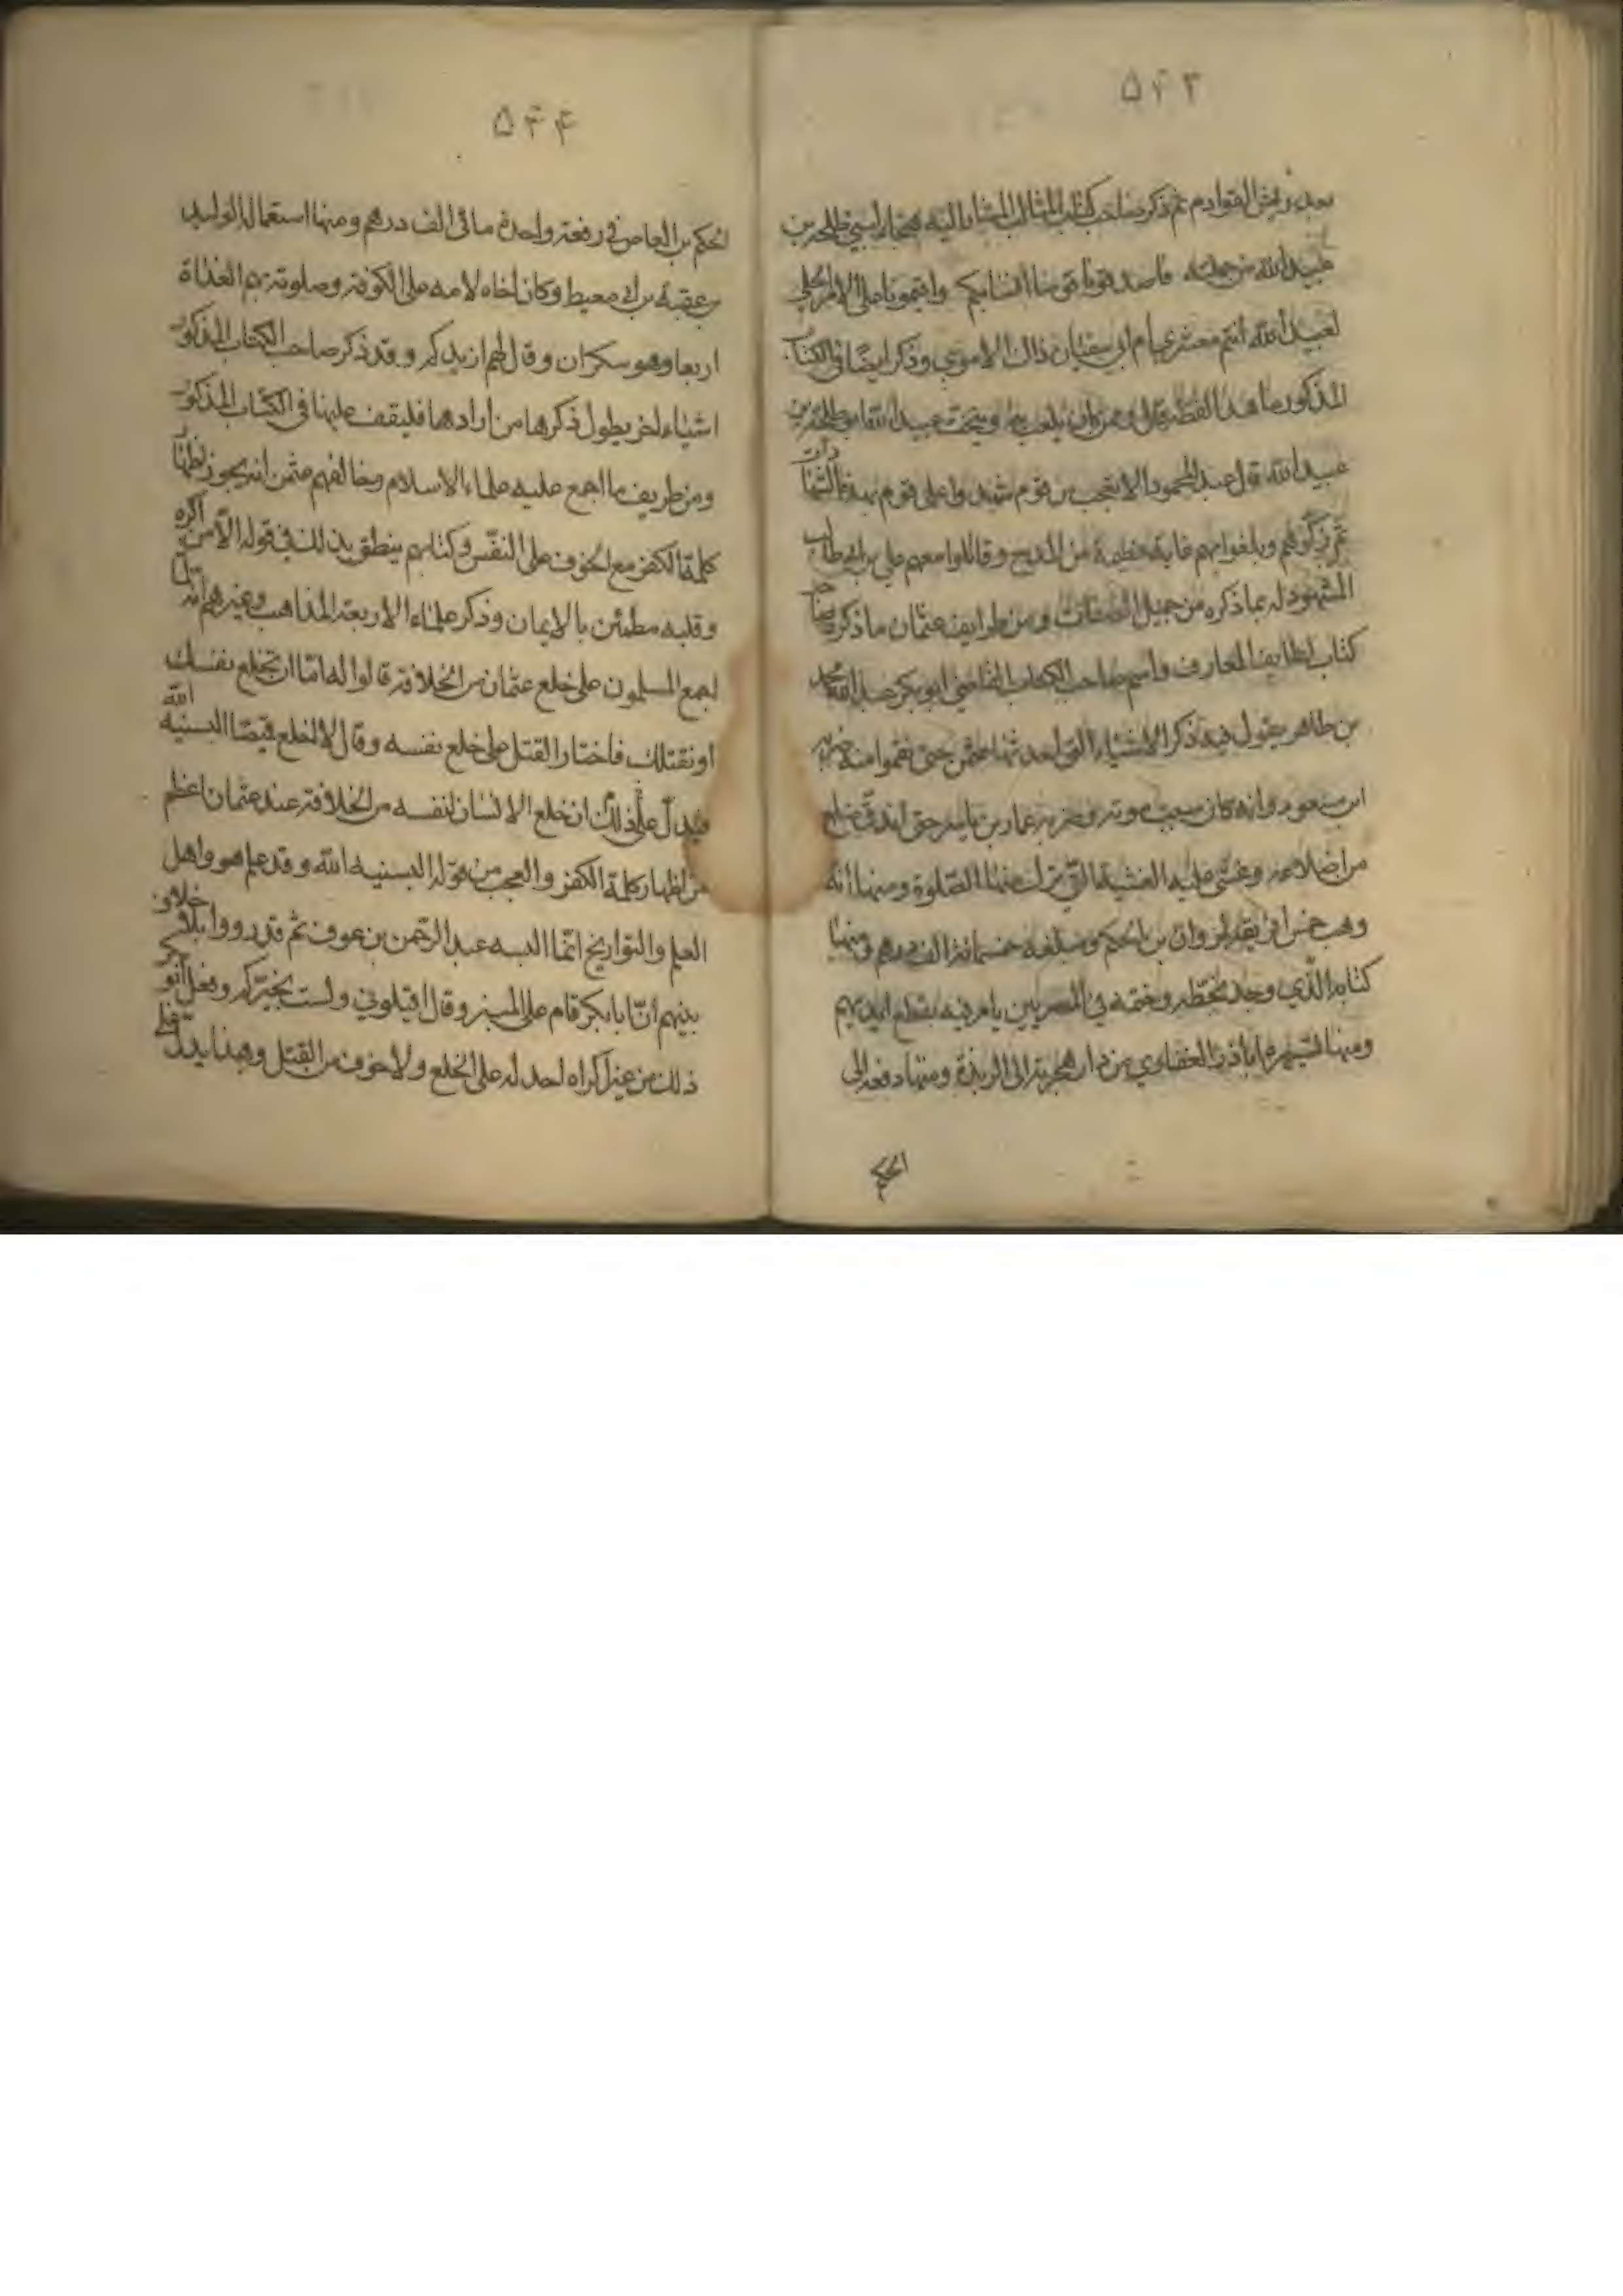 ۵۴۳
ثم ذكر صاحب كتاب المثالب المشار اليه هجاء لبني طلحة بن
عبيد الله من جملته فاصدقونا قومنا انسابكم واقيمونا على الامر الجلي
لعبيد الله انتم معشري ام ابي سفيان ذاك الاموي وذكر ايضا في الكتاب
المذكور ما هذا لفظه قال وممن كان يلعب به ويتخنث عبيد الله ابو طلحة بن
عبيد الله قال عبد المحمود الا تعجب من قوم شهدوا على قوم بهذه الشهادات
ثم زكوهم وبلغوا بهم غاية عظيمة من المدح وقاتلوا معهم علي بن ابيطالب
المشهود له بما ذكره من جميل الصفات ومن طرايف عثمان ما ذكره صاحب
كتاب لطايف المعارف واسم صاحب الكتاب القاضي ابو بكر عبد الله محمد
بن طاهر يقول فيه ذكر الاشياء التي احدثها عثمن حتى نقموا منه ضربه
ابن مسعود وانه كان سبب موته وضربه عمار بن ياسر حتى اندق ضلع
من اضلاعه وغشي عليه الغشية التي ترك عنها الصلوة ومنها انه
وهب خمس افريقية لمروان بن الحكم ومبلغه خمسمائة الف درهم ومنها
كتابه الذي وجد بخطه وختمه في المصريين يامر فيه بقطع ايديهم
ومنها تسييره اباذر الغفاري من دار هجرته الى الربذة ومنها دفعه الى
الحكم
۵۴۴
الحكم بن العاص في دفعة واحدة مائتي الف درهم ومنها استعماله الوليد
بن عقبة بن ابي معيط وكان اخاه لامه على الكوفة وصلوته بهم الغداة
اربعا وهو سكران وقال لهم ازيدكم وقد ذكر صاحب الكتاب المذكور
اشياء اخر يطول ذكرها من ارادها فليقف عليها في الكتاب المذكور
ومن طريف ما اجمع عليه علماء الاسلام وخالفهم عثمن انه يجوز اظهار
كلمة الكفر مع الخوف على النفس وكتابهم ينطق بذلك في قوله الا من اكره
وقلبه مطمئن بالايمان وذكر علماء الاربعة المذاهب وغيرهم انه لما
اجمع المسلمون على خلع عثمان من الخلافة قالوا له اما ان تخلع نفسك
او نقتلك فاختار القتل على خلع نفسه وقال لا اخلع قميصا البسنيه الله
فيدل على ذلك ان خلع الانسان لنفسه من الخلافة عند عثمان اعظم
من اظهار كلمة الكفر والعجب من قوله البسنيه الله وقد علم هو واهل
العلم والتواريخ انما البسه عبد الرحمن بن عوف ثم قد رووا بلا خلاف
بينهم ان ابابكر قام على المنبر وقال اقيلوني ولست بخيركم وفعل ابو بكر
ذلك من غير اكراه احد له على الخلع ولا خوف من القتل وهذا يدل على